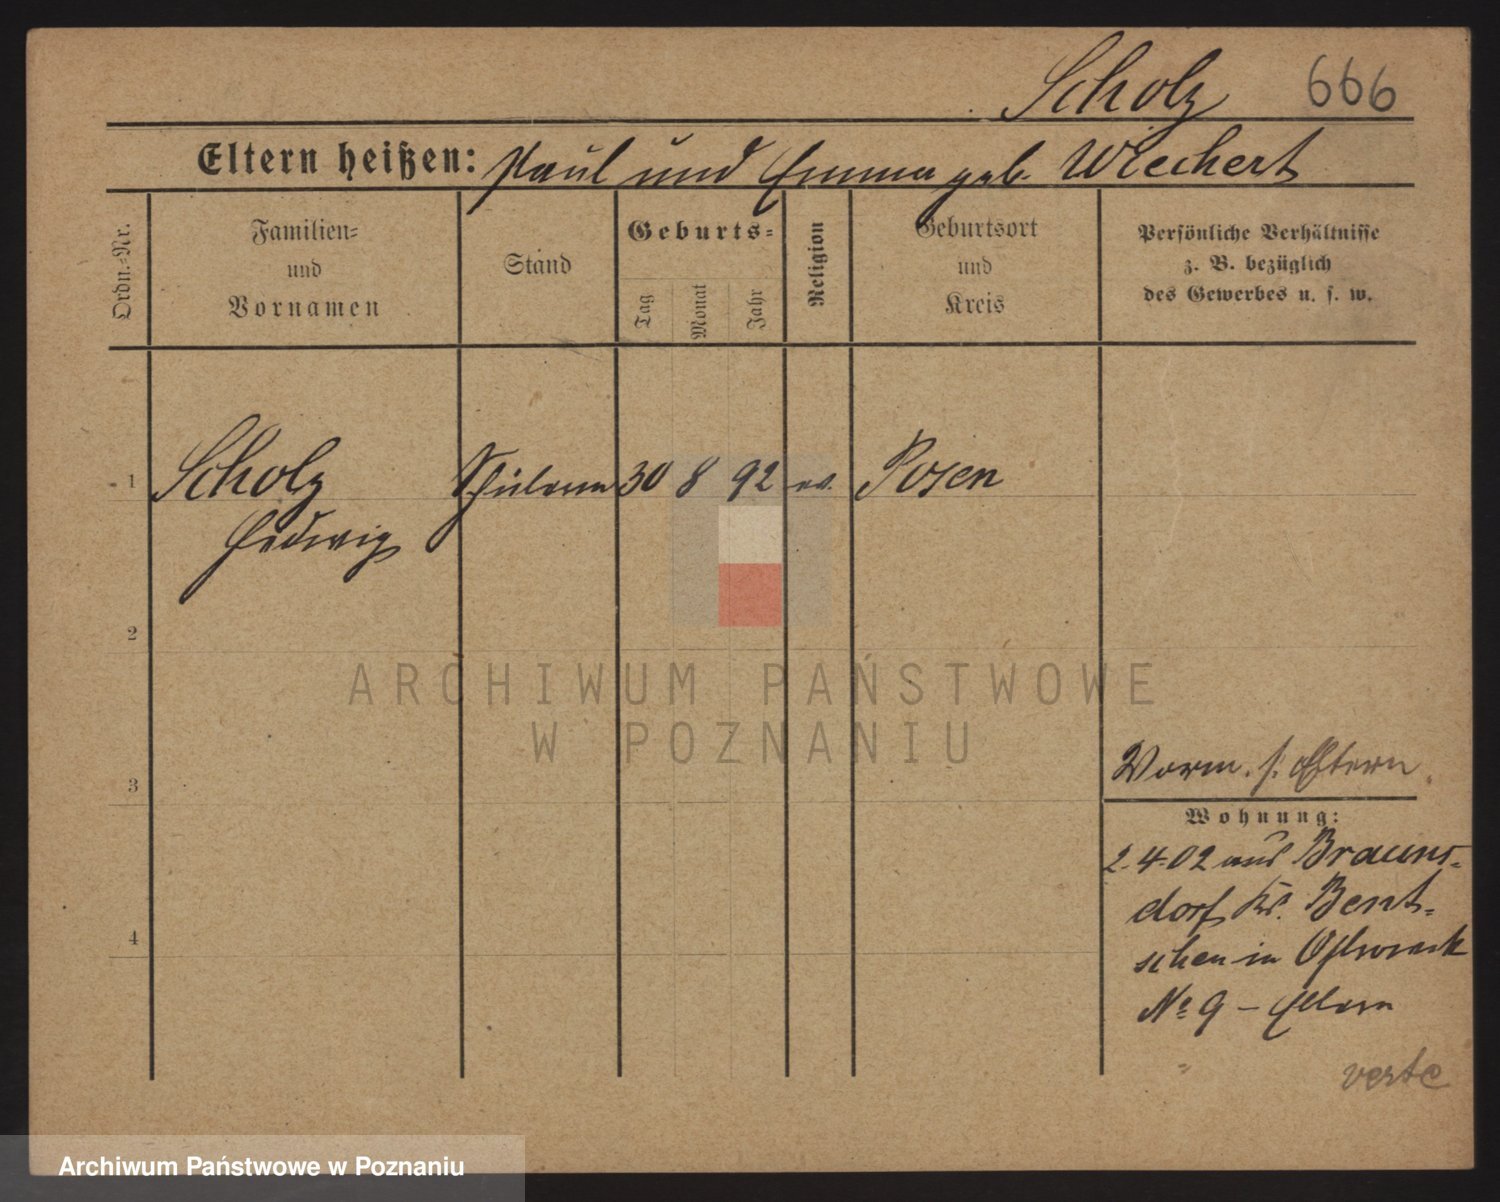 Scholz 666
Eltern heißen: Paul und Emma geb. Wiechert
Ordn.-Nr.
Familien-
und
Vornamen
Stand
Geburts-
Tag
Monat
Jahr
Religion
Geburtsort
und
Kreis
Persönliche Verhältnisse
z. B. bezüglich
des Gewerbes u. s. w.
1 Scholz Schülerin 30 8 92 ev. Posen
Hedwig
2
3
4
Vorm. s. Eltern
Wohnung:
2.4.02 aus Brauns-
dorf Kr. Bent-
schen in
No 9 – Eltern
verte
ARCHIWUM PAŃSTWOWE
W POZNANIU
Archiwum Państwowe w Poznaniu